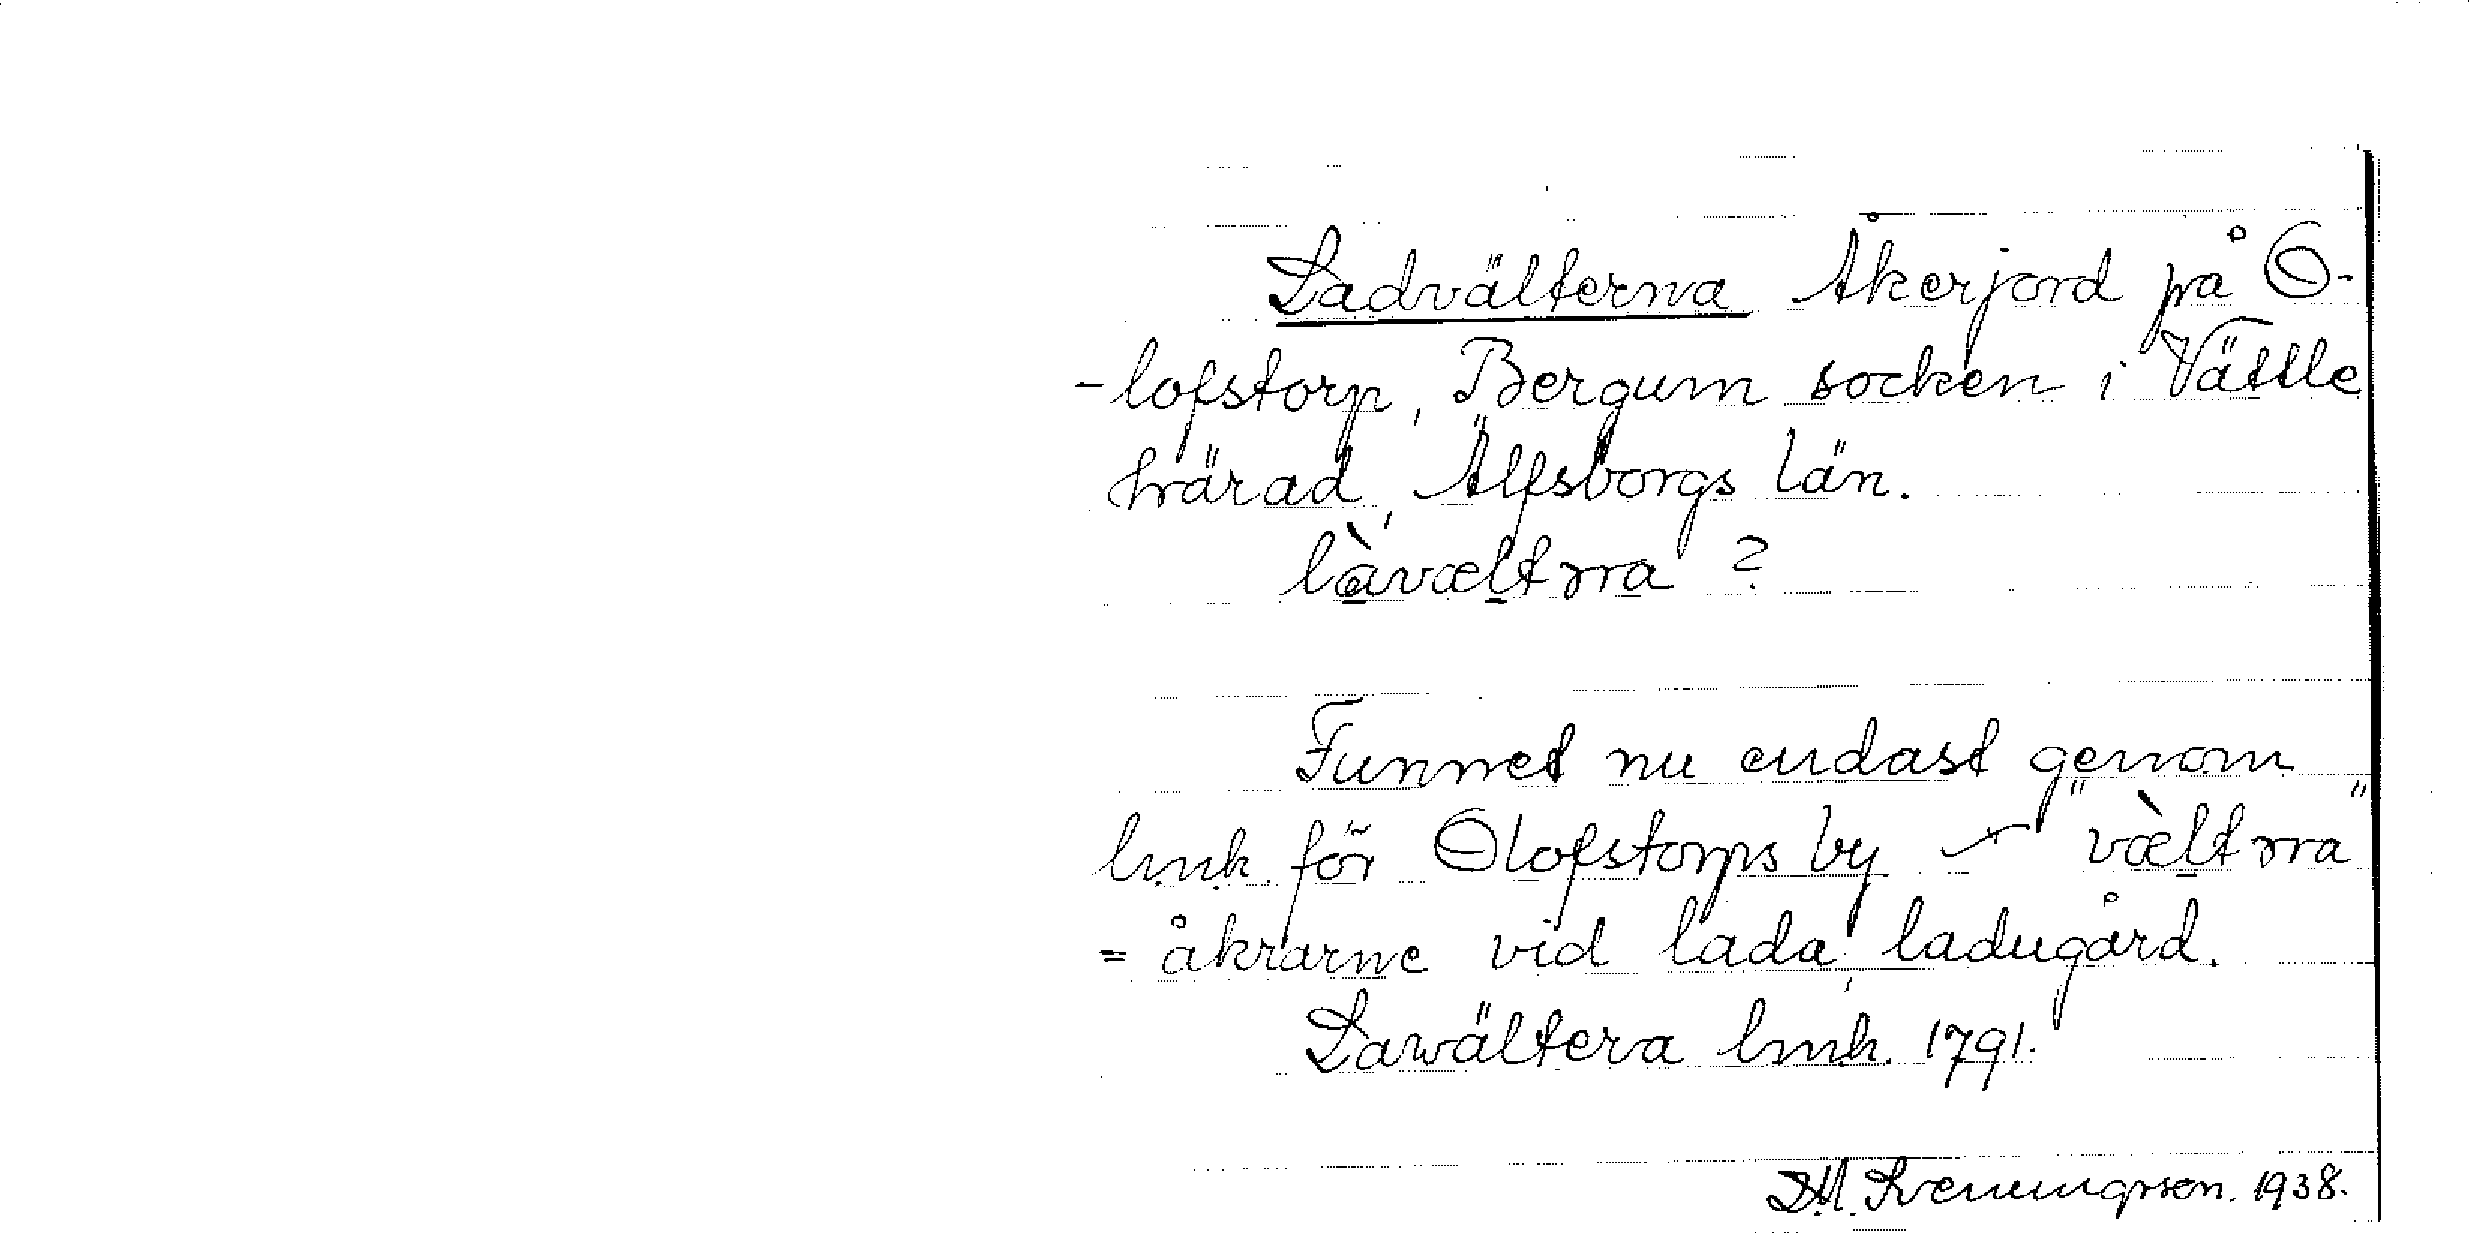 Ladvälterna Åkerjord på O-
-lofstorp, Bergum socken i Vättle
härad, Älfsborgs län.
làvæltrra ?
Funnet nu endast genom
lmk. för Olofstorps by - "væ̀ltrra"
= åkrarne vid lada, ladugård.
Lawältera lmk. 1791.
Sveningsson. 1938.